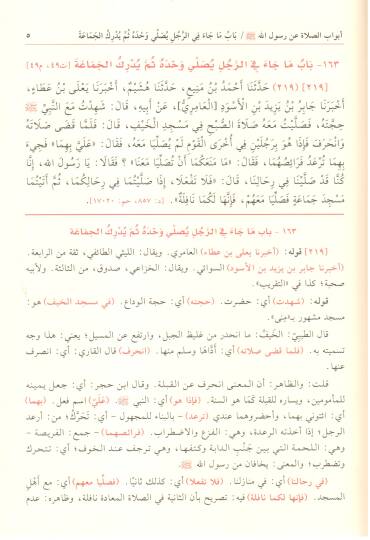 أبواب الصلاة عن رسول الله ﷺ / بَابُ مَا جَاءَ فِي الرَّجُلِ يُصَلِّي وَحْدَهُ ثُمَّ يُدْرِكُ الجَمَاعَةَ ٥
١٦٣- بَابُ مَا جَاءَ فِي الرَّجُلِ يُصَلِّي وَحْدَهُ ثُمَّ يُدْرِكُ الجَمَاعَةَ [ت٤٩، م٤٩]
[٢١٩] (٢١٩) حَدَّثَنَا أَحْمَدُ بْنُ مَنِيعٍ، حَدَّثَنَا هُشَيْمٌ، أَخْبَرَنَا يَعْلَى بْنُ عَطَاءٍ،
أَخْبَرَنَا جَابِرُ بْنُ يَزِيدَ بْنِ الأَسْوَدِ [العَامِرِيُّ]، عَنْ أَبِيهِ، قَالَ: شَهِدْتُ مَعَ النَّبِيِّ ﷺ
حَجَّتَهُ، فَصَلَّيْتُ مَعَهُ صَلَاةَ الصُّبْحِ فِي مَسْجِدِ الْخَيْفِ، قَالَ: فَلَمَّا قَضَى صَلَاتَهُ
وَانْحَرَفَ فَإِذَا هُوَ بِرَجُلَيْنِ فِي أُخْرَى الْقَوْمِ لَمْ يُصَلِّيَا مَعَهُ، فَقَالَ: «عَلَيَّ بِهِمَا» فَجِيءَ
بِهِمَا تُرْعَدُ فَرَائِصُهُمَا، فَقَالَ: «مَا مَنَعَكُمَا أَنْ تُصَلِّيَا مَعَنَا» ؟ فَقَالَا: يَا رَسُولَ اللهِ، إِنَّا
كُنَّا قَدْ صَلَّيْنَا فِي رِحَالِنَا، قَالَ: «فَلَا تَفْعَلَا، إِذَا صَلَّيْتُمَا فِي رِحَالِكُمَا، ثُمَّ أَتَيْتُمَا
مَسْجِدَ جَمَاعَةٍ فَصَلِّيَا مَعَهُمْ، فَإِنَّهَا لَكُمَا نَافِلَةٌ». [ن: ٨٥٧، حم: ١٧٠٢٠].
١٦٣ - باب مَا جَاءَ فِي الرَّجُلِ يُصَلِّي وَحْدَهُ ثُمَّ يُدْرِكُ الجَمَاعَةَ
[٢١٩] قوله: (أخبرنا يعلى بن عطاء) العامري. ويقال: الليثي الطائفي، ثقة من الرابعة.
(أخبرنا جابر بن يزيد بن الأسود) السوائي. ويقال: الخزاعي، صدوق، من الثالثة. ولأبيه
صحبة؛ كذا في «التقريب».
قوله: (شهدت) أي: حضرت. (حجته) أي: حجة الوداع. (في مسجد الخيف) هو:
مسجد مشهور بـ«منى».
قال الطيبيّ: الخَيْفُ: ما انحدر من غليظ الجبل، وارتفع عن المسيل؛ يعني: هذا وجه
تسميته به. (فلما قضى صلاته) أي: أدَّاها وسلم منها. (انحرف) قال القاري: أي: انصرف
عنها.
قلت: والظاهر: أن المعنى انحرف عن القبلة. وقال ابن حجر: أي: جعل يمينه
للمأمومين، ويساره للقبلة كما هو السنة. (فإذا هو) أي: النبي ﷺ. (عَلَيَّ) اسم فعل. (بهما)
أي: ائتوني بهما، وأحضروهما عندي (ترعد) - بالبناء للمجهول - أي: تَحَرَّكُ؛ من: أرعد
الرجل؛ إذا أخذته الرعدة، وهي: الفزع والاضطراب. (فرائصهما) - جمع: الفريصة -
وهي: اللحمة التي بين جَنْبِ الدابة وكتفها، وهي ترجف عند الخوف؛ أي: تتحرك
وتضطرب؛ والمعنى: يخافان من رسول الله ﷺ.
(في رحالنا) أي: في منازلنا. (فلا تفعلا) أي: كذلك ثانيًا. (فصليا معهم) أي: مع أهْلِ
المسجد. (فإنها لكما نافلة) فيه: تصريح بأن الثانية في الصلاة المعادة نافلة، وظاهره: عدم